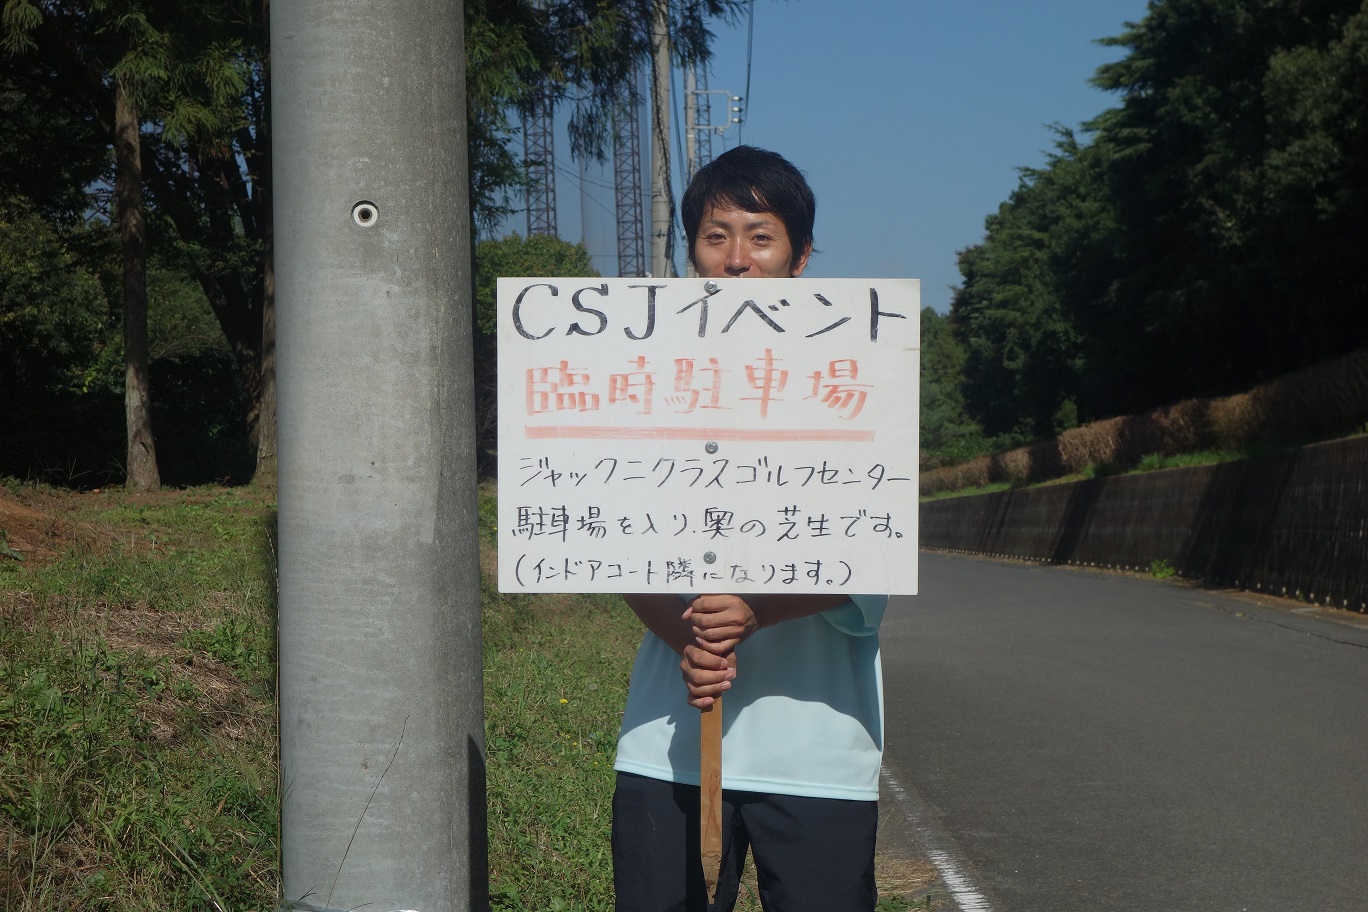 CSJイベント
臨時駐車場
ジャックニクラスゴルフセンター
駐車場を入り、奥の芝生です。
(インドアコート隣になります。)